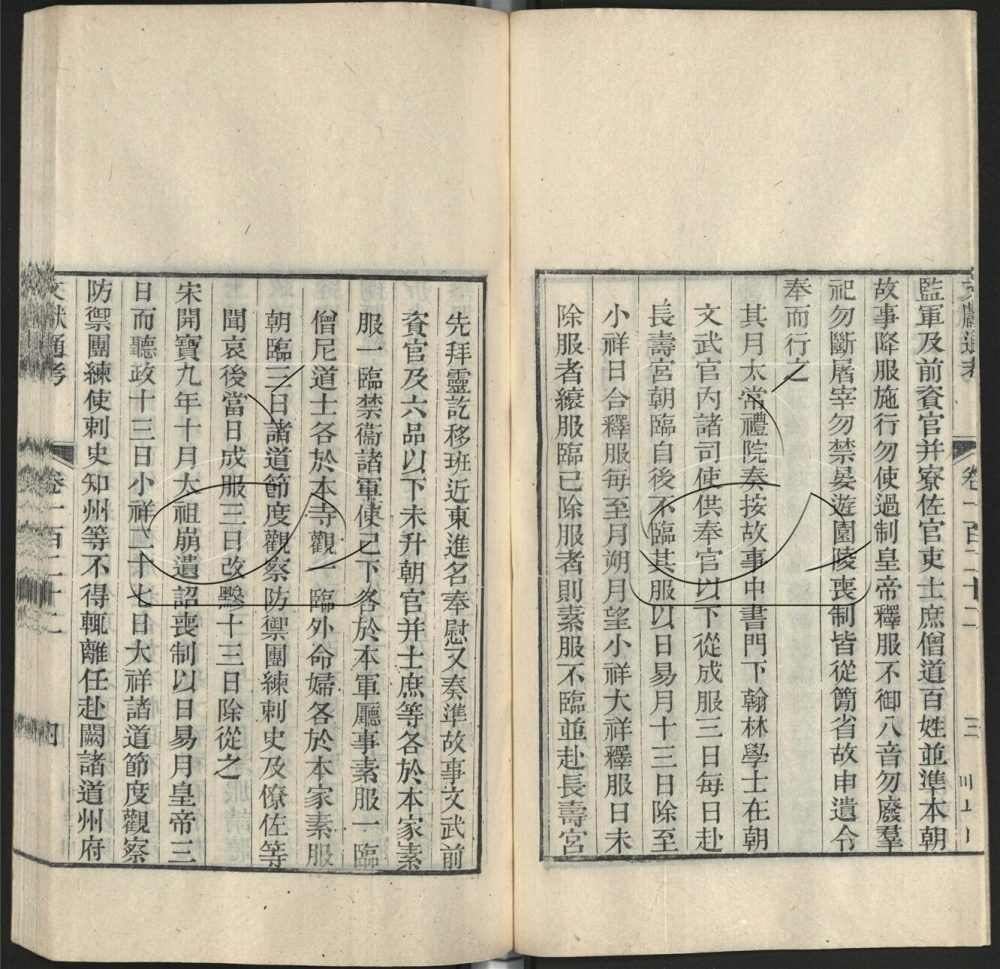 監軍及前資官并寮佐官吏士庶僧道百姓並準本朝
故事降服施行勿使過制皇帝釋服不御八音勿廢羣
祀勿斷屠宰勿禁晏遊園陵喪制皆從簡省故申遺令
奉而行之
其月太常禮院奏按故事中書門下翰林學士在朝
文武官內諸司使供奉官以下從成服三日每日赴
長壽宮朝臨自後不臨其服以日易月十三日除至
小祥日合釋服每至月朔月望小祥大祥釋服日未
除服者縗服臨已除服者則素服不臨並赴長壽宮
先拜靈訖移班近東進名奉慰又奏準故事文武前
資官及六品以下未升朝官并士庶等各於本家素
服一臨禁衞諸軍使已下各於本軍廳事素服一臨
僧尼道士各於本寺觀一臨外命婦各於本家素服
朝臨三日諸道節度觀察防禦團練刺史及僚佐等
聞哀後當日成服三日改黲十三日除從之
宋開寶九年十月太祖崩遺詔喪制以日易月皇帝三
日而聽政十三日小祥二十七日大祥諸道節度觀察
防禦團練使刺史知州等不得輒離任赴闕諸道州府
文獻通考 卷一百二十二 四